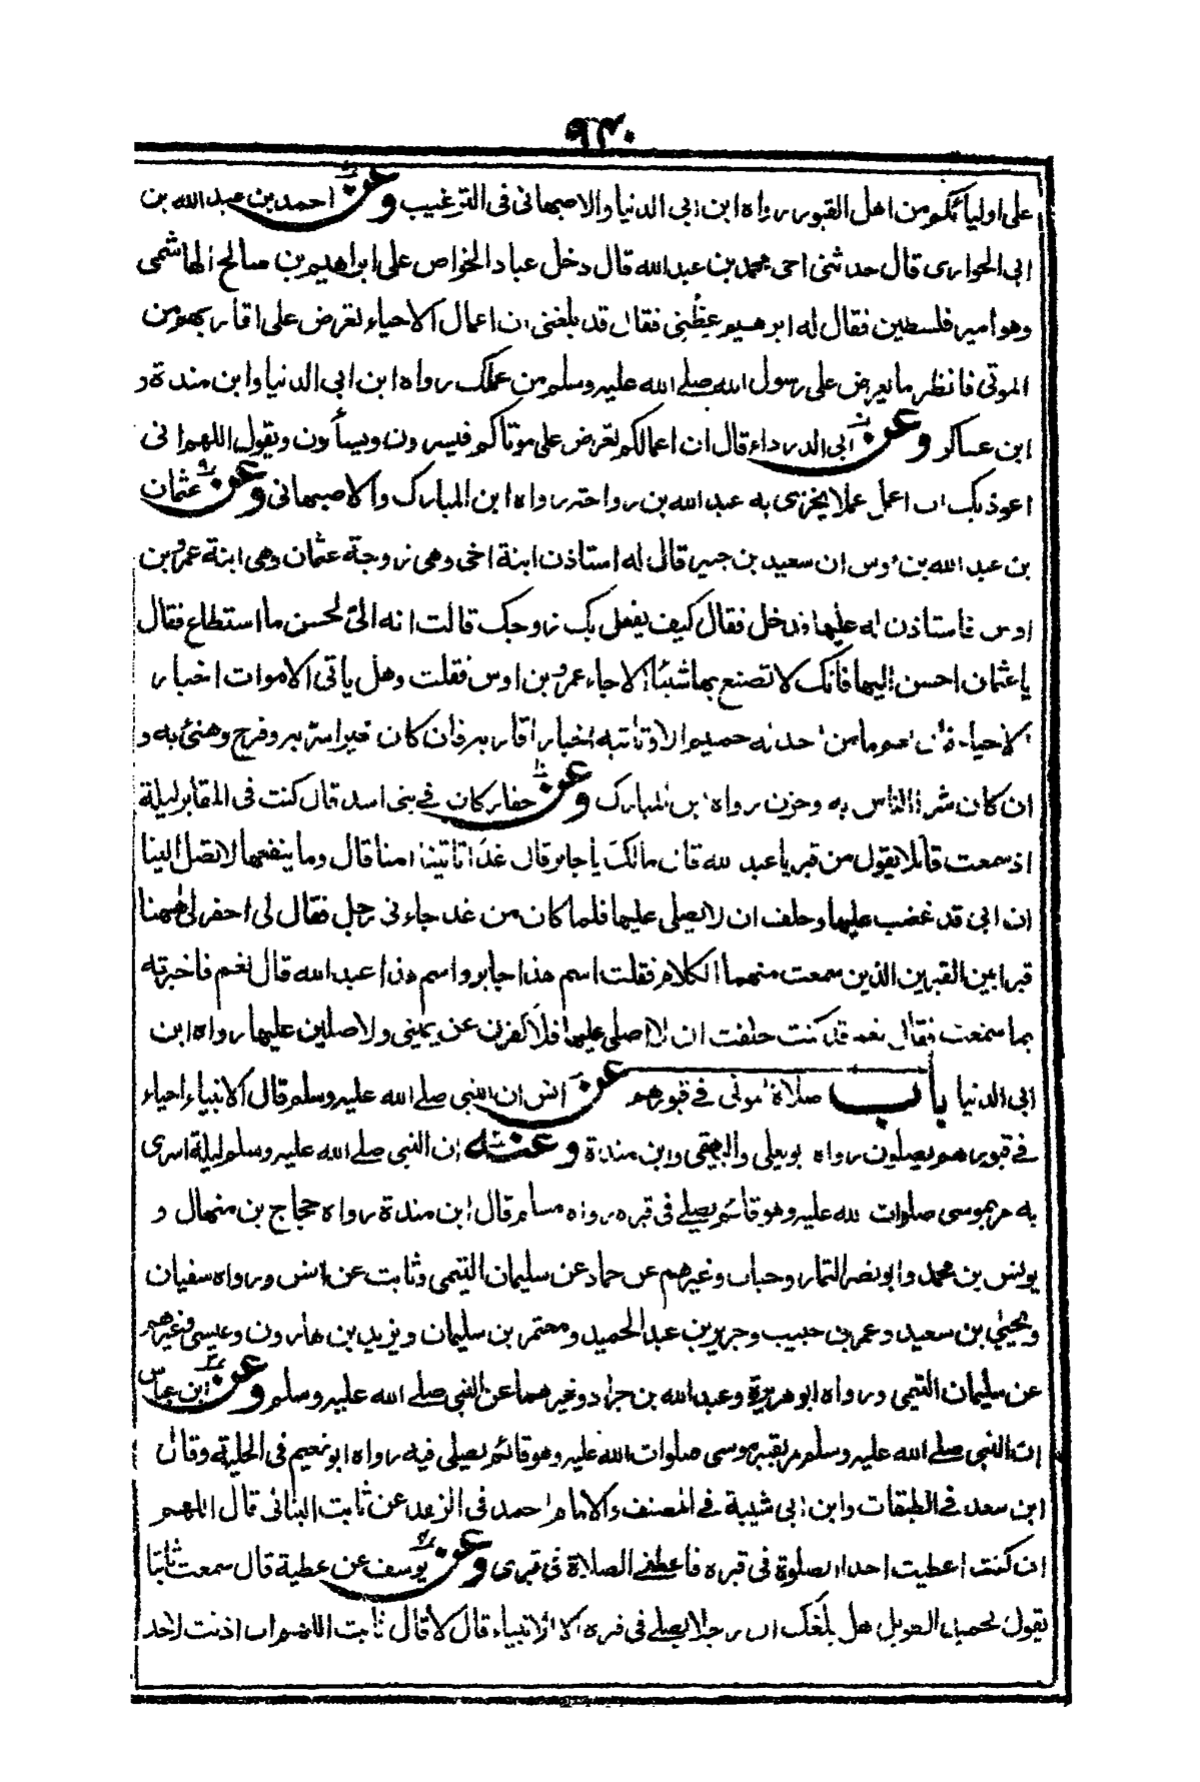 ٩٣٠
على اوليائكم من اهل القبور رواه ابن ابى الدنيا والاصبهانى فى الترغيب وعن احمد بن عبد الله بن
ابى الحوارى قال حدثنى اخى محمد بن عبد الله قال دخل عباد الخواص على ابراهيم بن صالح الهاشمى
وهو امير فلسطين فقال له ابرهيم عِظْنِى فقال قد بلغنى ان اعمال الاحياء تعرض على اقاربهم من
الموتى فانظر ما يعرض على رسول الله صلے الله عليه وسلم من عملك رواه ابن ابى الدنيا وابن مندة و
ابن عساكر وعن ابى الدرداء قال ان اعمالكم تعرض على موتاكم فيسرون ويسأون ويقول اللهم انى
اعوذ بك ان اعمل عملا يخزى به عبد الله بن رواحة رواه ابن المبارك والاصبهانى وعن عثمان
بن عبد الله بن اوس ان سعيد بن جبير قال له استاذن ابنة اخى وهى زوجة عثمان وهى ابنة عمرو بن
اوس فاستاذن له عليها فدخل فقال كيف يفعل بك زوجك قالت انه الىّ لحسن ما استطاع فقال
يا عثمان احسن اليها فانك لا تصنع بها شيئا الا جاء عمرو بن اوس فقلت وهل ياتى الاموات اخبار
الاحياء قال نعم ما من احد له حميم الا وتاتيه اخبار اقاربه فان كان خيرا سر به وفرح وهنئ به و
ان كان شرا ابتاس به وحزن رواه ابن المبارك وعن حفار كان فے بنى اسد قال كنت فى المقابر ليلة
اذ سمعت قائلا يقول من قبر يا عبد الله قال مالك يا جابر قال غدًا تاتينا امنا قال وما ينفعها لا تصل الينا
ان ابى قد غضب عليها وحلف ان لا يصلى عليها فلما كان من غد جاءنى رجل فقال لى احفر لى ههنا
قبرا بين القبرين الذين سمعت منهما الكلام فقلت اسم هذا جابر واسم هذا عبد الله قال نعم فاخبرته
بما سمعت فقال نعم قد كنت حلفت ان لا اصلى عليها فلأكفرن عن يمينى ولاصلين عليها رواه ابن
ابى الدنيا باب صلاة الموتى فے قبورهم عن انس ان النبى صلے الله عليه وسلم قال الانبياء احياء
فے قبورهم يصلون رواه ابو يعلى والبيهقى وابن مندة وعنه ان النبى صلے الله عليه وسلم ليلة اسرى
به مر بموسى صلوات الله عليه وهو قائم يصلے فى قبره رواه مسلم قال ابن مندة رواه حجاج بن منهال و
يونس بن محمد وابو نصر التمار وحباب وغيرهم عن حماد عن سليمان التيمى وثابت عن انس ورواه سفيان
ويحيى بن سعيد وعمر بن حبيب وجرير بن عبد الحميد ومعتمر بن سليمان ويزيد بن هارون وعيسى وغيرهم
عن سليمان التيمى ورواه ابو هريرة وعبد الله بن جراد وغيرهما عن النبى صلے الله عليه وسلم وعن ابن عباس
ان النبى صلے الله عليه وسلم مر بقبر موسى صلوات الله عليه وهو قائم يصلى فيه رواه ابو نعيم فى الحلية وقال
ابن سعد فے الطبقات وابن ابى شيبة فے المصنف والامام احمد فى الزهد عن ثابت البنانى قال اللهم
ان كنت اعطيت احدا الصلوة فى قبره فاعطنے الصلاة فى قبرى وعن يوسف عن عطية قال سمعت ثابتا
يقول لحميد الطويل هل بلغك ان رجلا يصلے فى قبره الا الانبياء قال لا قال ثابت اللهم ان اذنت لاحد